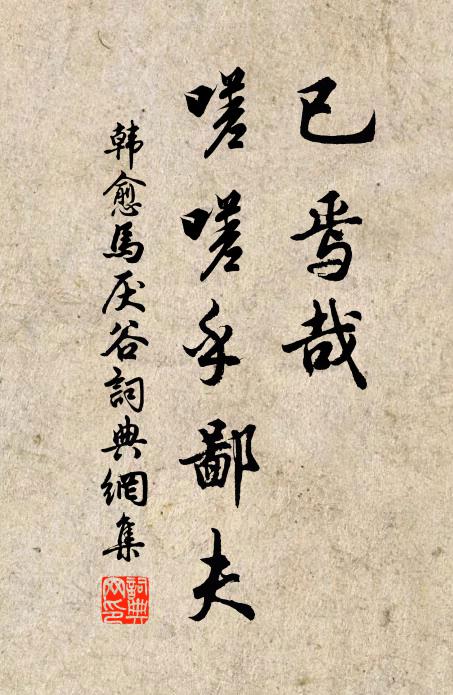 已焉哉
嗟嗟乎鄙夫
韩愈馬厌谷詞典網集
詞典网印